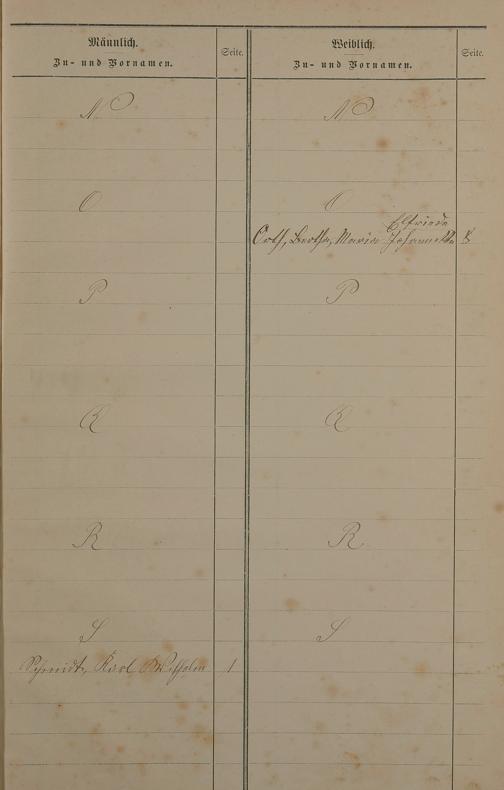 Männlich.
Zu- und Vornamen.
Seite.
Weiblich.
Zu- und Vornamen.
Seite.
N
N
O
O
Elfriede
Orth, Bertha, Maria Johannette 8
P
P
Q
Q
R
R
S
S
Schmidt, Karl Wilhelm 1